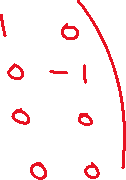 0
0 -1
0 0
0 0